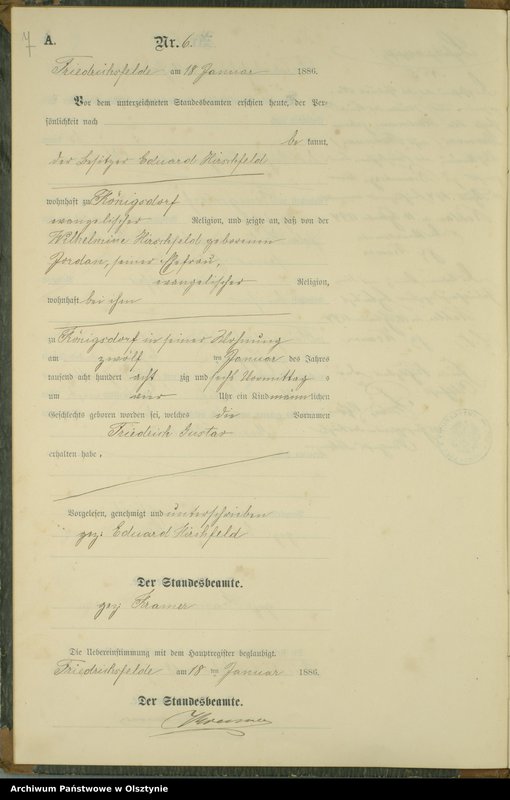 7
A.
Nr. 6.
Friedrichsfelde am 18 Januar 1886.
Vor dem unterzeichneten Standesbeamten erschien heute, der Per-
sönlichkeit nach
be kannt,
der Besitzer Eduard Hirschfeld
wohnhaft zu Königsdorf
evangelischer Religion, und zeigte an, daß von der
Wilhelmine Hirschfeld geborenen
Jordan, seiner Ehefrau,
evangelischer Religion,
wohnhaft bei ihm
zu Königsdorf in seiner Wohnung
am zwölf ten Januar des Jahres
tausend acht hundert acht zig und sechs Vormittag s
um vier Uhr ein Kind männ lichen
Geschlechts geboren worden sei, welches die Vornamen
Friedrich Gustav
erhalten habe.
Vorgelesen, genehmigt und unterschrieben
gez: Eduard Hirschfeld
Der Standesbeamte.
gez
Die Uebereinstimmung mit dem Hauptregister beglaubigt.
Friedrichsfelde am 18 ten Januar 1886.
Der Standesbeamte.
Archiwum Państwowe w Olsztynie